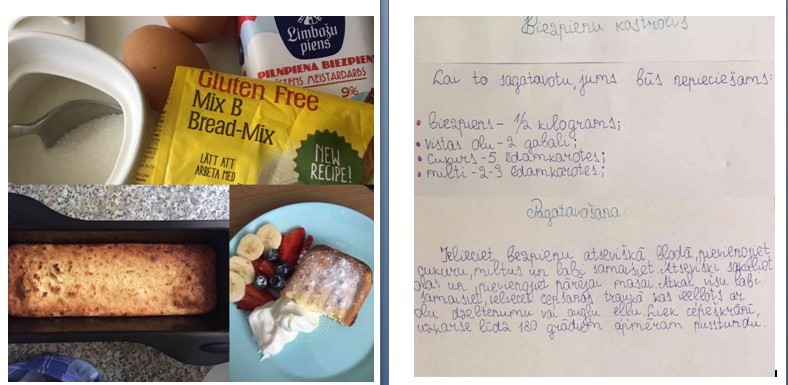 Limbažu
piens
PILNPIENA BIEZPIEN
ĪSTENS MEISTARDARBS
9%
Gluten Free
Mix B
Bread-Mix
LÄTT ATT
ARBETA MED
NEW
RECIPE!
Biezpienu kastrolis
Lai to sagatavotu, jums būs nepieciešams:
• biezpiens - 1/2 kilograms;
• vistas olu - 2 gabali;
• cukurs - 5 ēdamkarotes;
• milti - 2-3 ēdamkarotes;
Pagatavošana:
Ielieciet bezpienu atsevišķā blodā, pievienojiet
cukuru, miltus un labi samaisiet. Atsevišķi sakuliet
olas un pievienojiet pārējai masai. Atkal visu labi
samaisiet, ielieciet cepšanas traukā kas ieeļļots ar
olu dzeltenumu vai augļu eļļu. Liek cepeškrāsnī,
uzkarsē līdz 180 grādiem apmēram pusstundu.